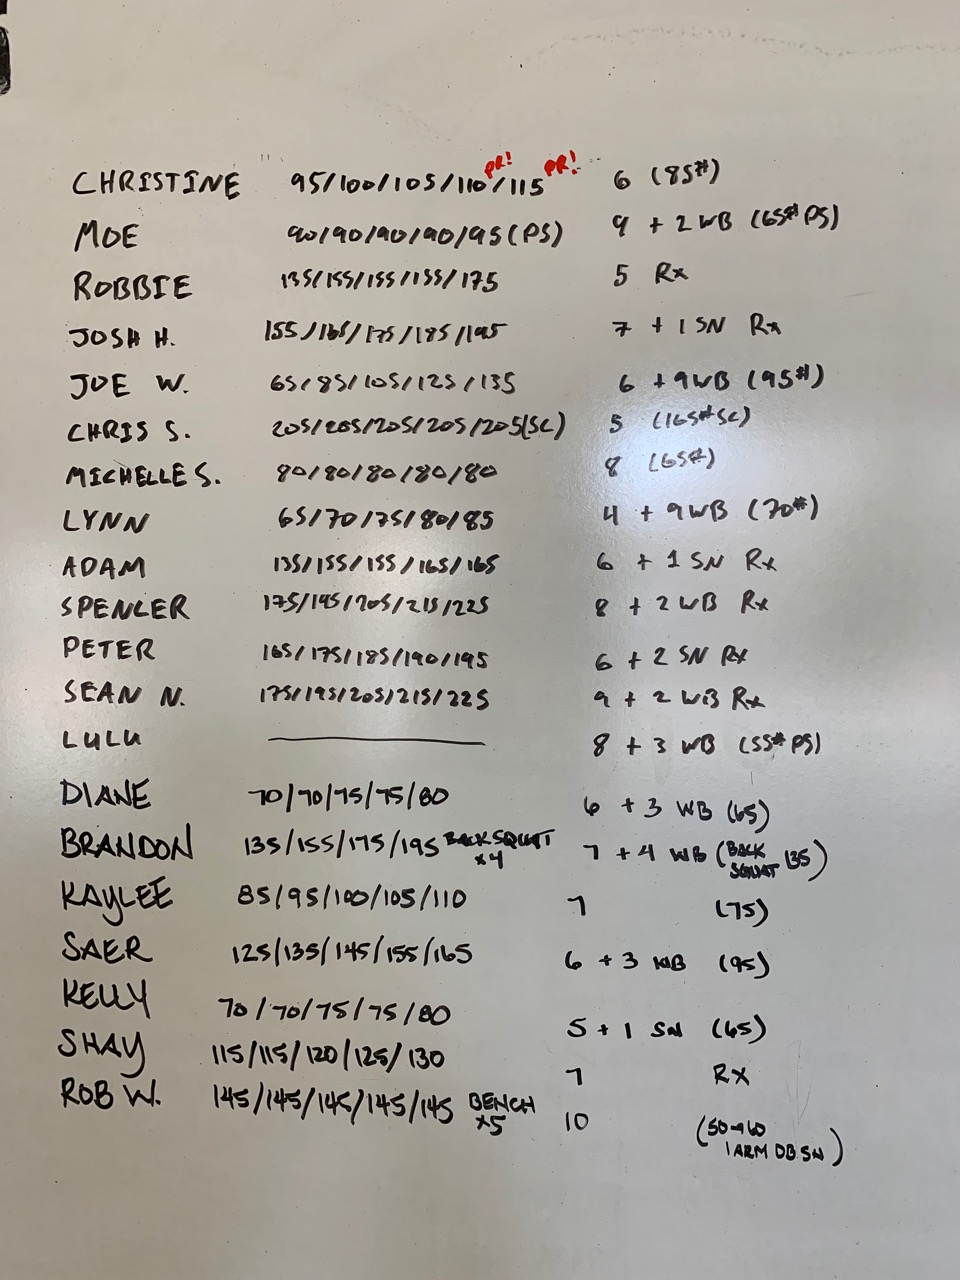 CHRISTINE 95/100/105/110/115 PR! PR! 6 (85#)
MOE 90/90/90/90/95(PS) 9 + 2 WB (65# PS)
ROBBIE 135/155/155/155/175 5 Rx
JOSH H. 155/165/175/185/195 7 + 1 SN Rx
JOE W. 65/85/105/125/135 6 + 9WB (95#)
CHRIS S. 205/205/205/205/205(SC) 5 (165# SC)
MICHELLE S. 80/80/80/80/80 8 (65#)
LYNN 65/70/75/80/85 4 + 9WB (70#)
ADAM 135/155/155/165/165 6 + 1 SN Rx
SPENCER 175/195/205/215/225 8 + 2 WB Rx
PETER 165/175/185/190/195 6 + 2 SN Rx
SEAN N. 175/195/205/215/225 9 + 2 WB Rx
LULU 8 + 3 WB (55# PS)
DIANE 70/70/75/75/80 6 + 3 WB (65)
BRANDON 135/155/175/195 BACK SQUAT x4 7 + 4 WB (BACK SQUAT 135)
KAYLEE 85/95/100/105/110 7 (75)
SAER 125/135/145/155/165 6 + 3 WB (95)
KELLY 70/70/75/75/80 5 + 1 SN (65)
SHAY 115/115/120/125/130 7 RX
ROB W. 145/145/145/145/145 BENCH x5 10 (50→60 1 ARM DB SN)